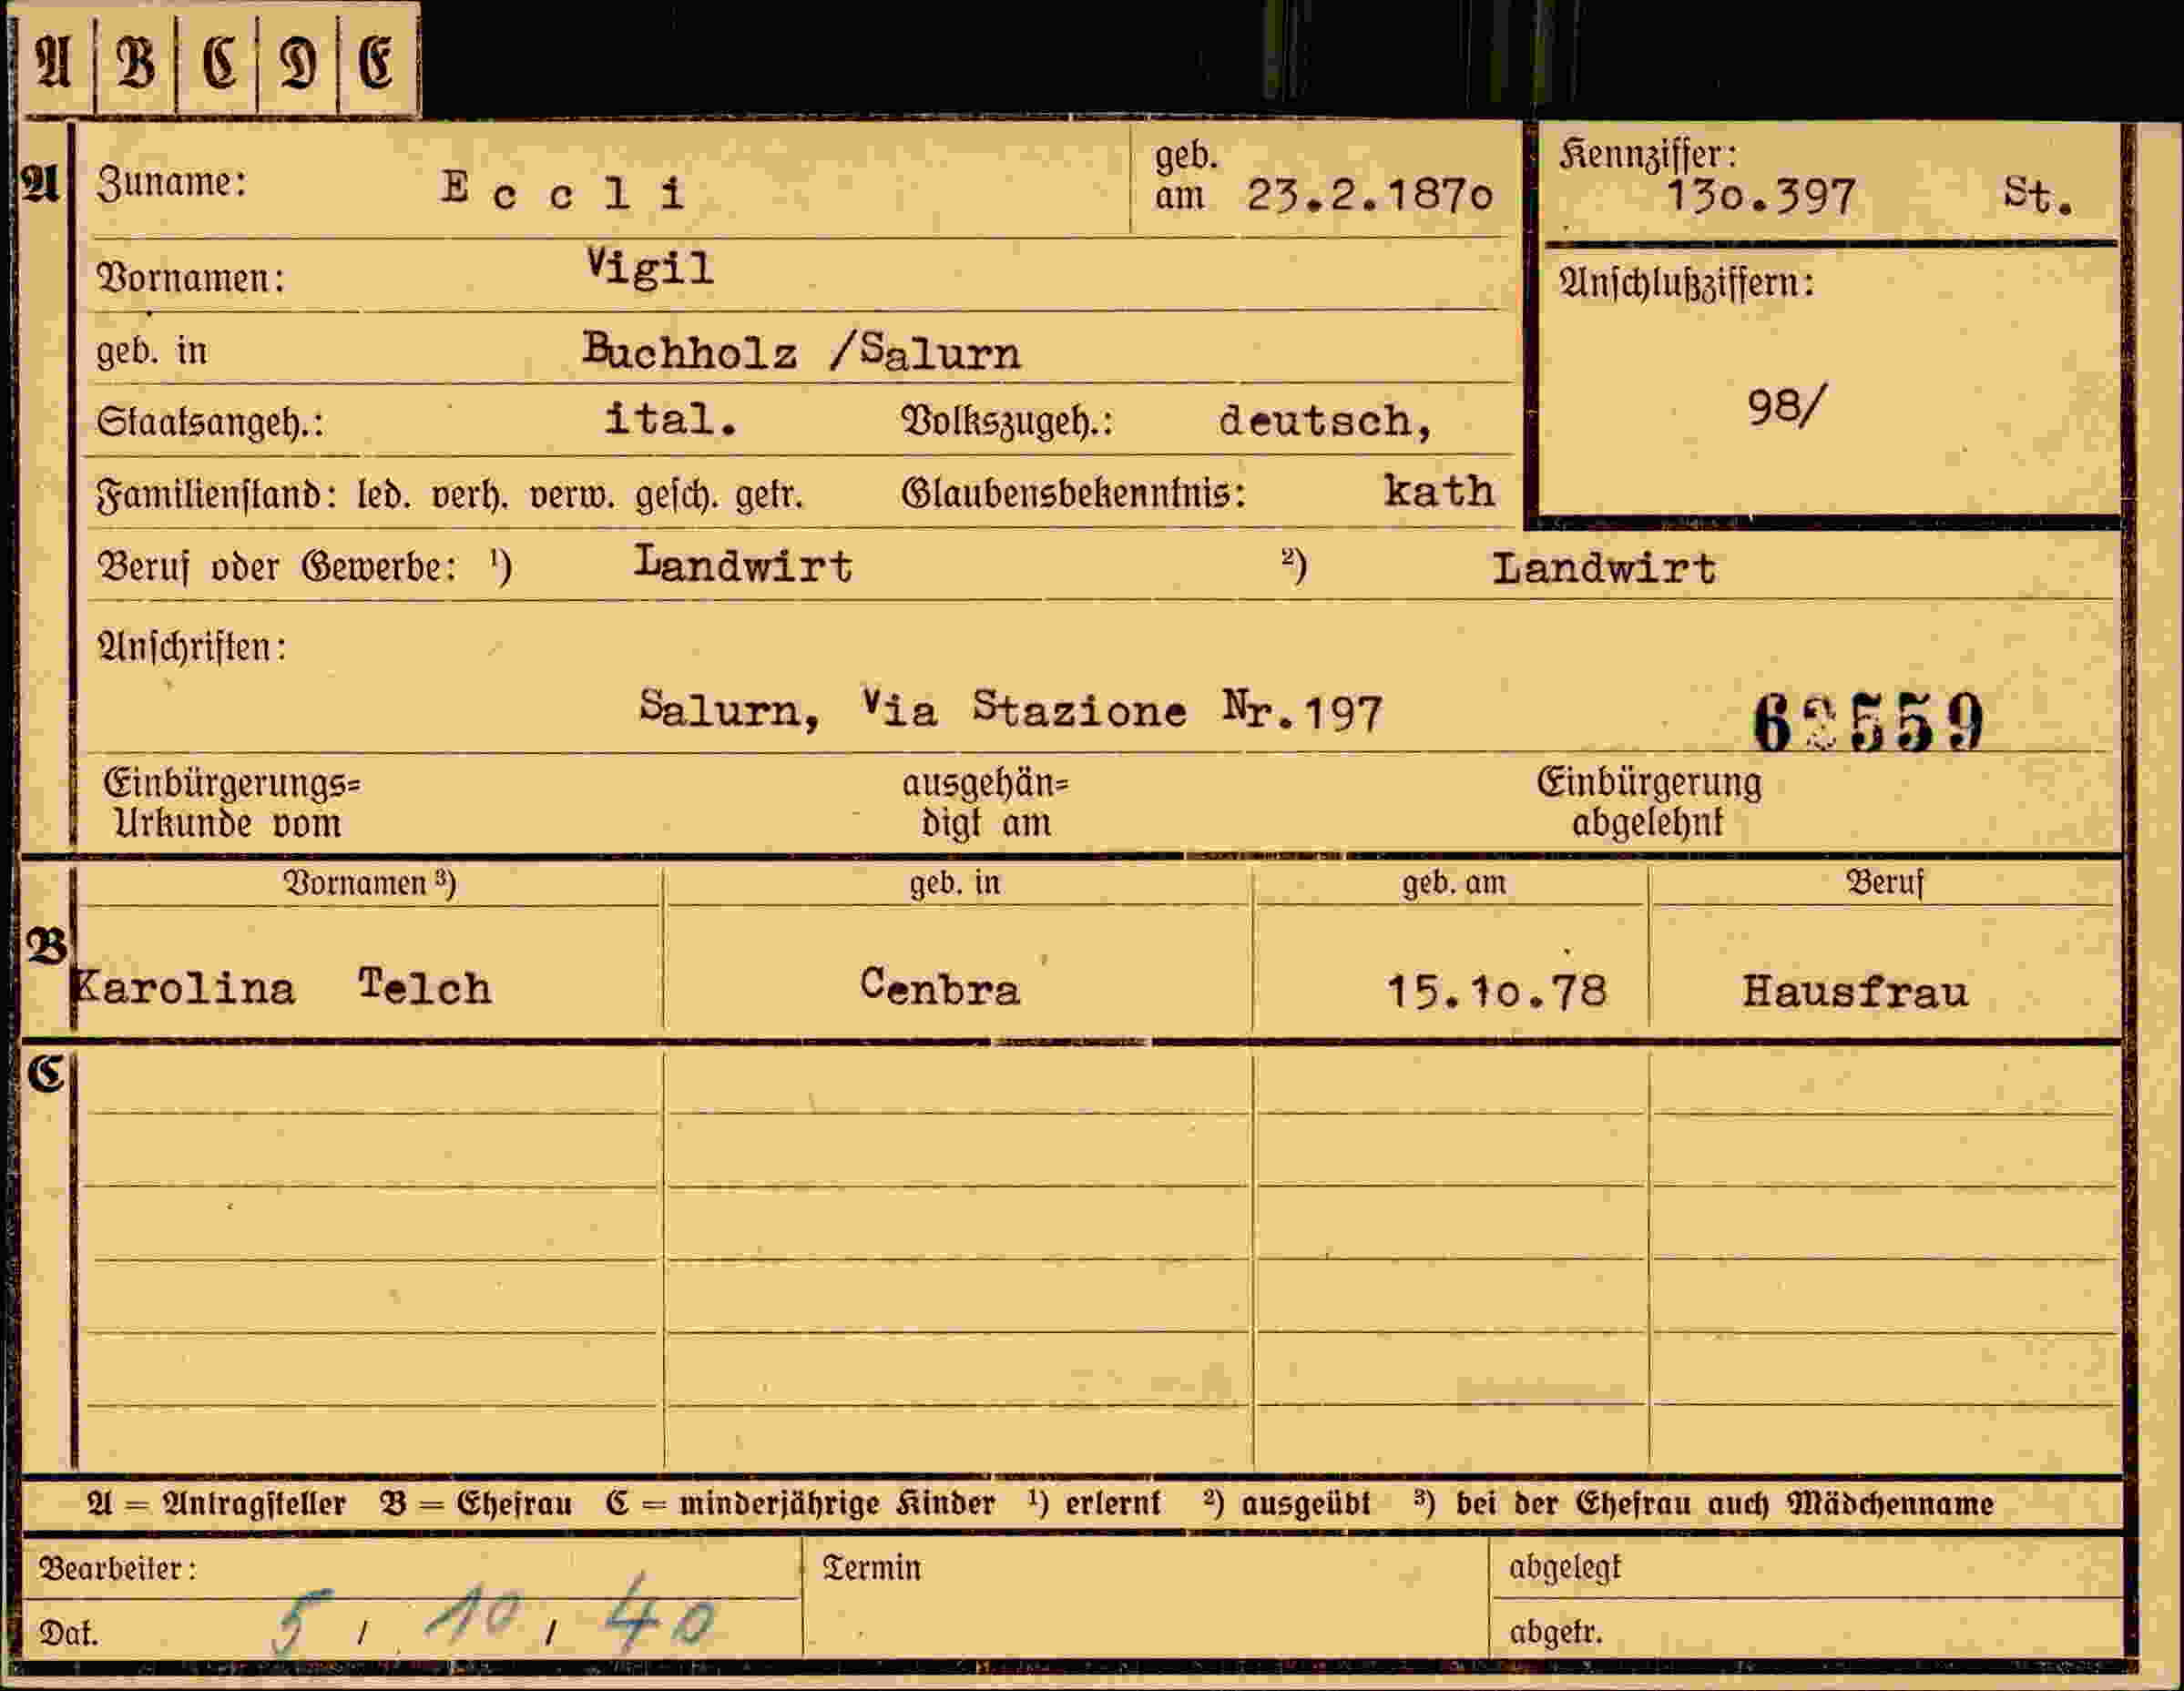 A B C D E
A Zuname: Eccli geb. am 23.2.1870 Kennziffer: 130.397 St.
Vornamen: Vigil
Anschlußziffern: 98/
geb. in Buchholz /Salurn
Staatsangeh.: ital. Volkszugeh.: deutsch,
Familienstand: led. verh. verw. gesch. getr. Glaubensbekenntnis: kath
Beruf oder Gewerbe: ¹) Landwirt ²) Landwirt
Anschriften:
Salurn, Via Stazione Nr.197
Einbürgerungs= ausgehän= Einbürgerung
Urkunde vom digt am abgelehnt
Vornamen ³) geb. in geb. am Beruf
B Karolina Telch Cenbra 15.10.78 Hausfrau
C
A = Antragsteller B = Ehefrau C = minderjährige Kinder ¹) erlernt ²) ausgeübt ³) bei der Ehefrau auch Mädchenname
Bearbeiter: Termin abgelegt
Dat. 5 / 10 / 40 abgetr.